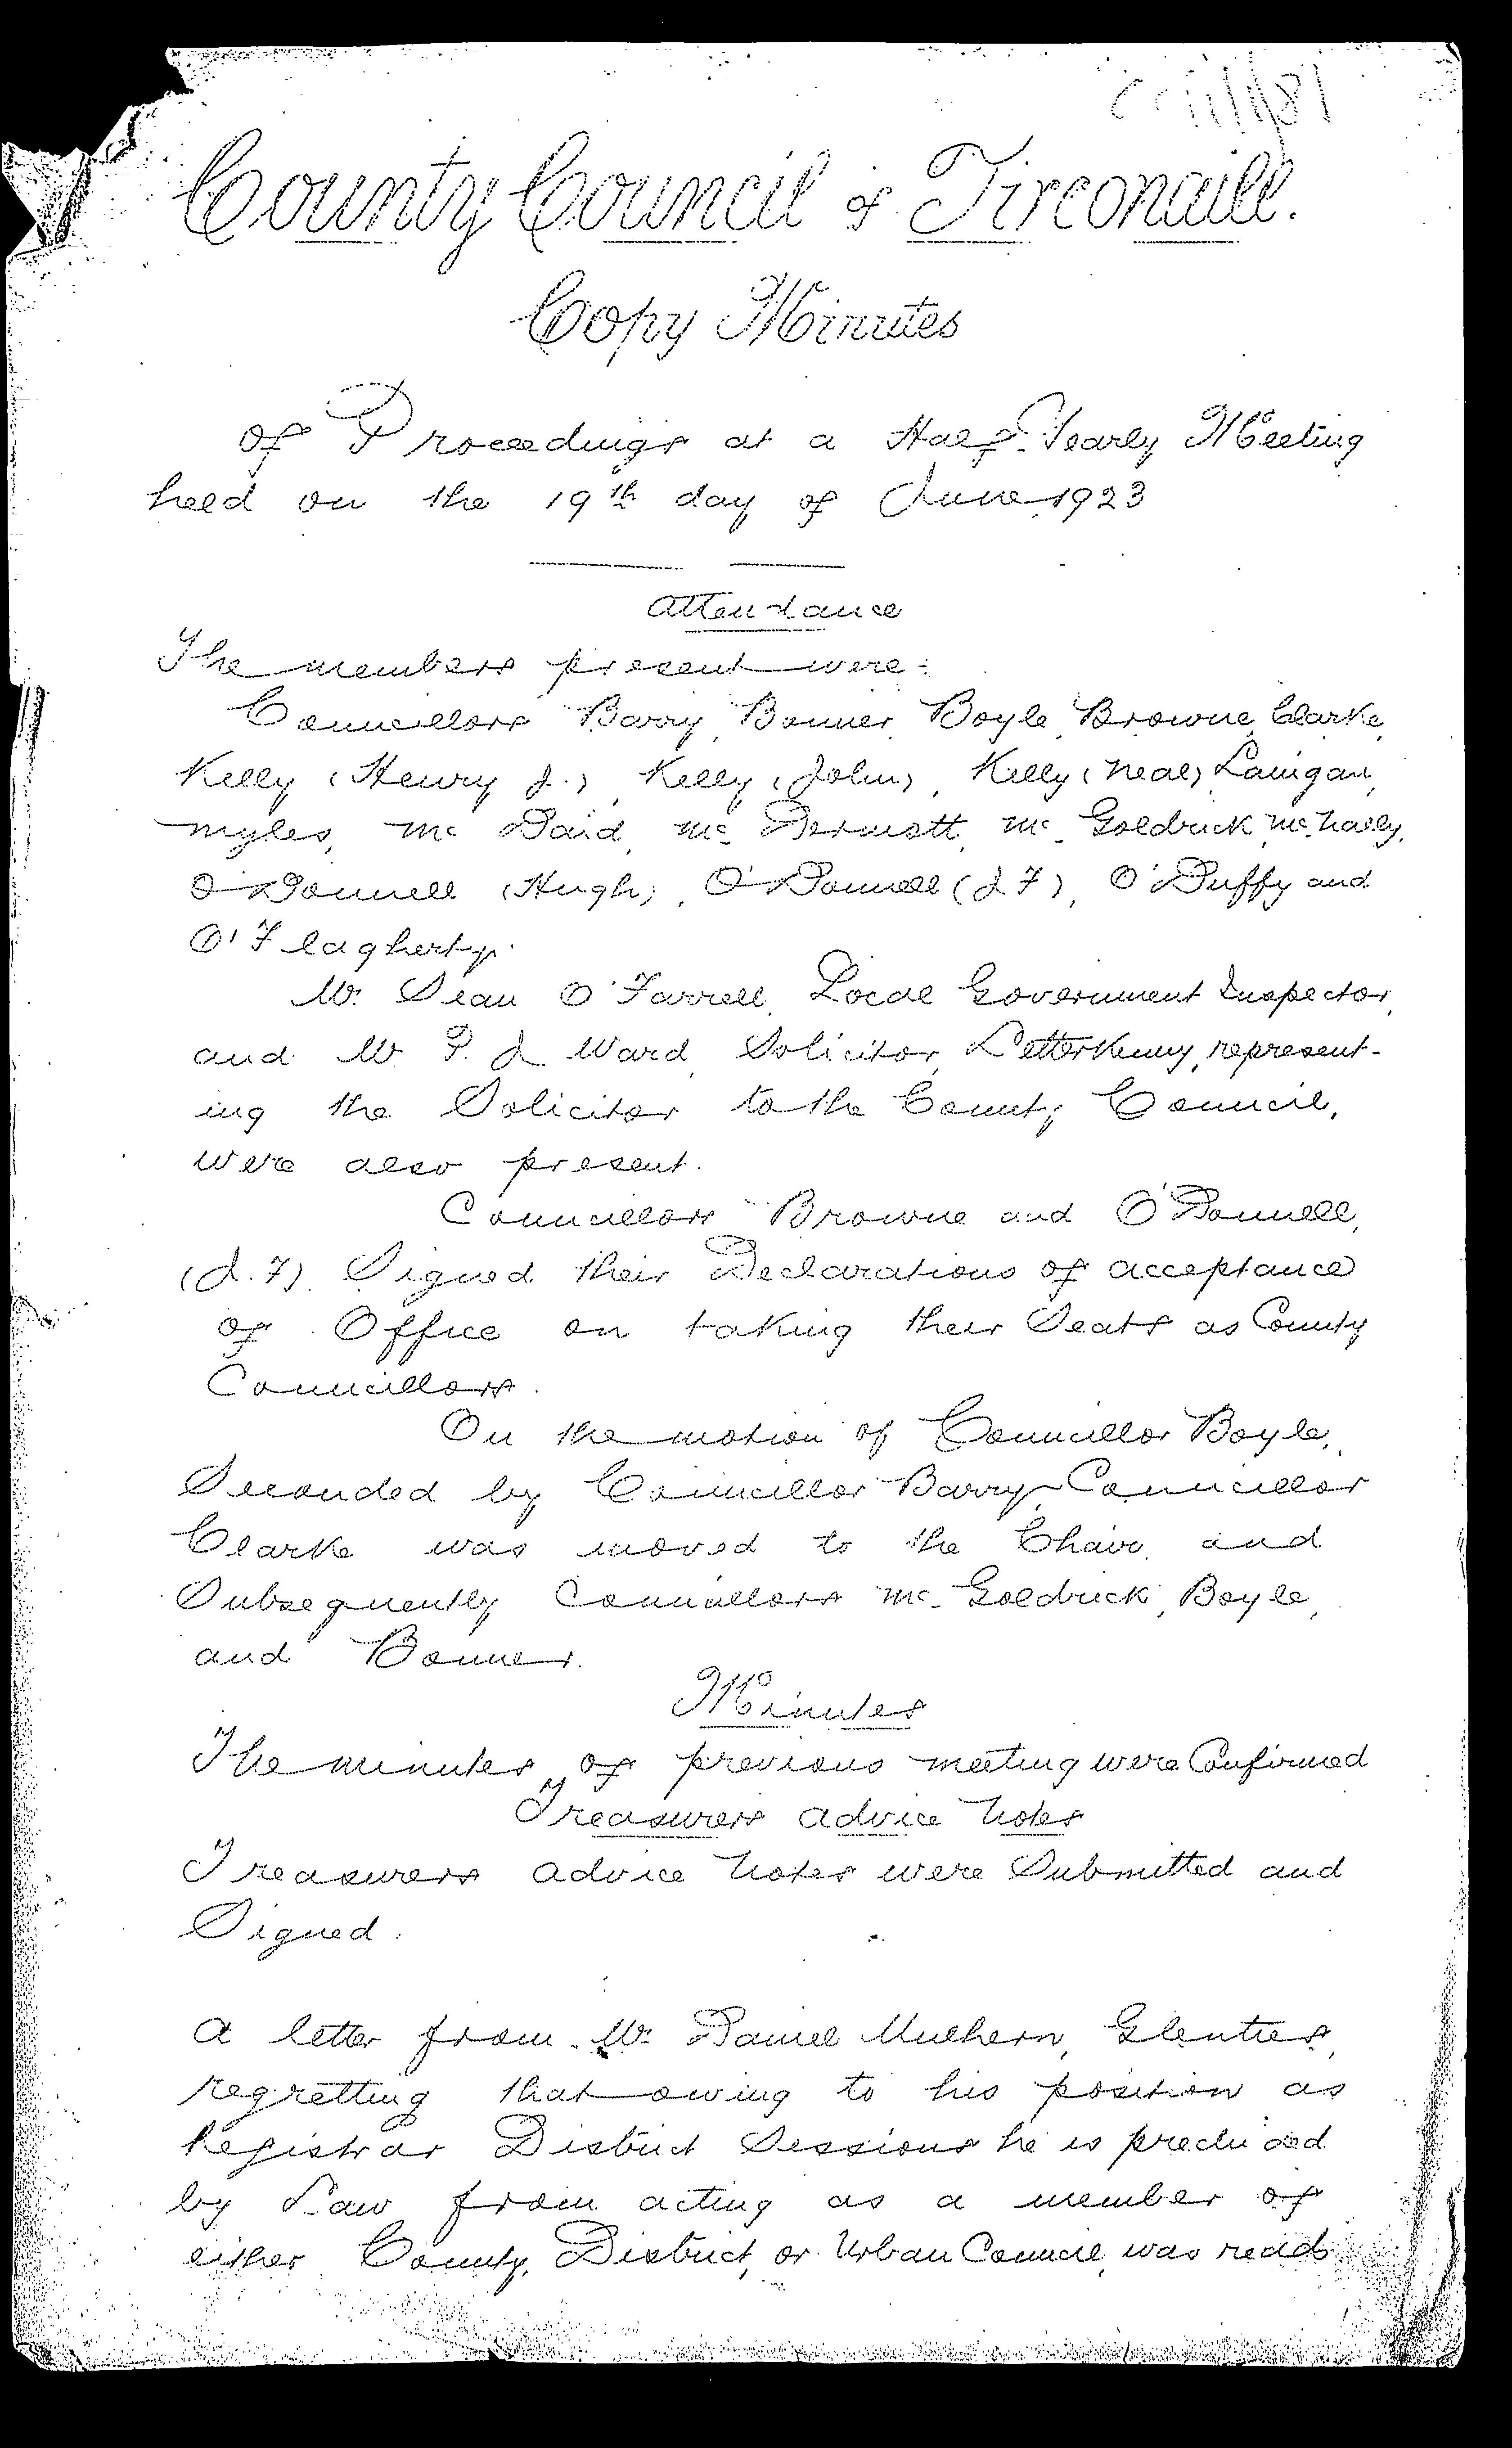 County Council of Tirconaill.
Copy Minutes
of Proceedings at a Half-Yearly Meeting
held on the 19th day of June 1923
Attendance
The members present were:
Councillors Barry, Bonner, Boyle, Browne, Clarke,
Kelly (Henry J.), Kelly (John), Kelly (Neal) Lanigan,
Myles, Mc Daid, Mc Dermott, Mc Goldrick, McNally,
O'Donnell (Hugh), O'Donnell (J F), O'Duffy and
O'Flagherty.
Mr. Sean O'Farrell, Local Government Inspector,
and Mr. P. J Ward, Solicitor, Letterkenny, represent-
ing the Solicitor to the County Council,
were also present.
Councillors Browne and O'Donnell,
(J.F). Signed their Declarations of acceptance
of Office on taking their Seats as County
Councillors.
On the motion of Councillor Boyle,
Seconded by Councillor Barry, Councillor
Clarke was moved to the Chair, and
Subsequently Councillors Mc Goldrick, Boyle,
and Bonner.
Minutes
The minutes of previous meeting were Confirmed
Treasurers advice Notes
Treasurers advice Notes were Submitted and
Signed.
A letter from Mr. Daniel Mulhern, Glenties,
regretting that owing to his position as
Registrar District Sessions he is precluded
by Law from acting as a member of
either County, District, or Urban Council, was read